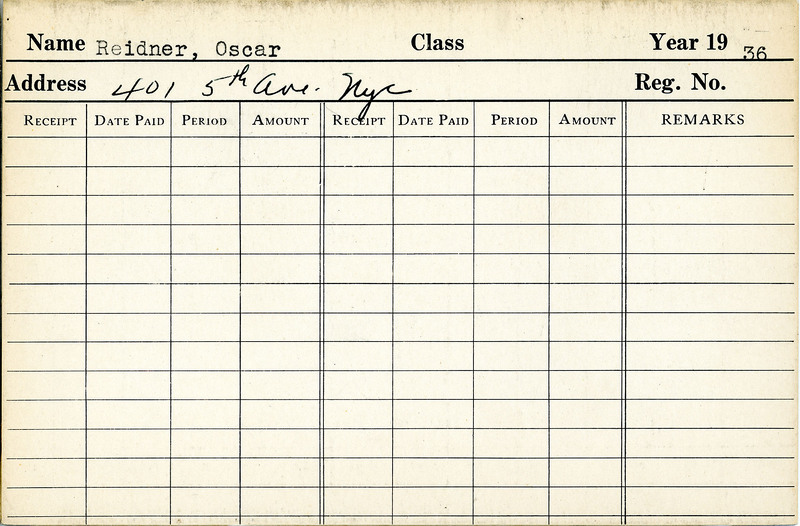 Name Reidner, Oscar Class Year 19 36
Address 401 5th Ave. Nyc Reg. No.
RECEIPT DATE PAID PERIOD AMOUNT RECEIPT DATE PAID PERIOD AMOUNT REMARKS